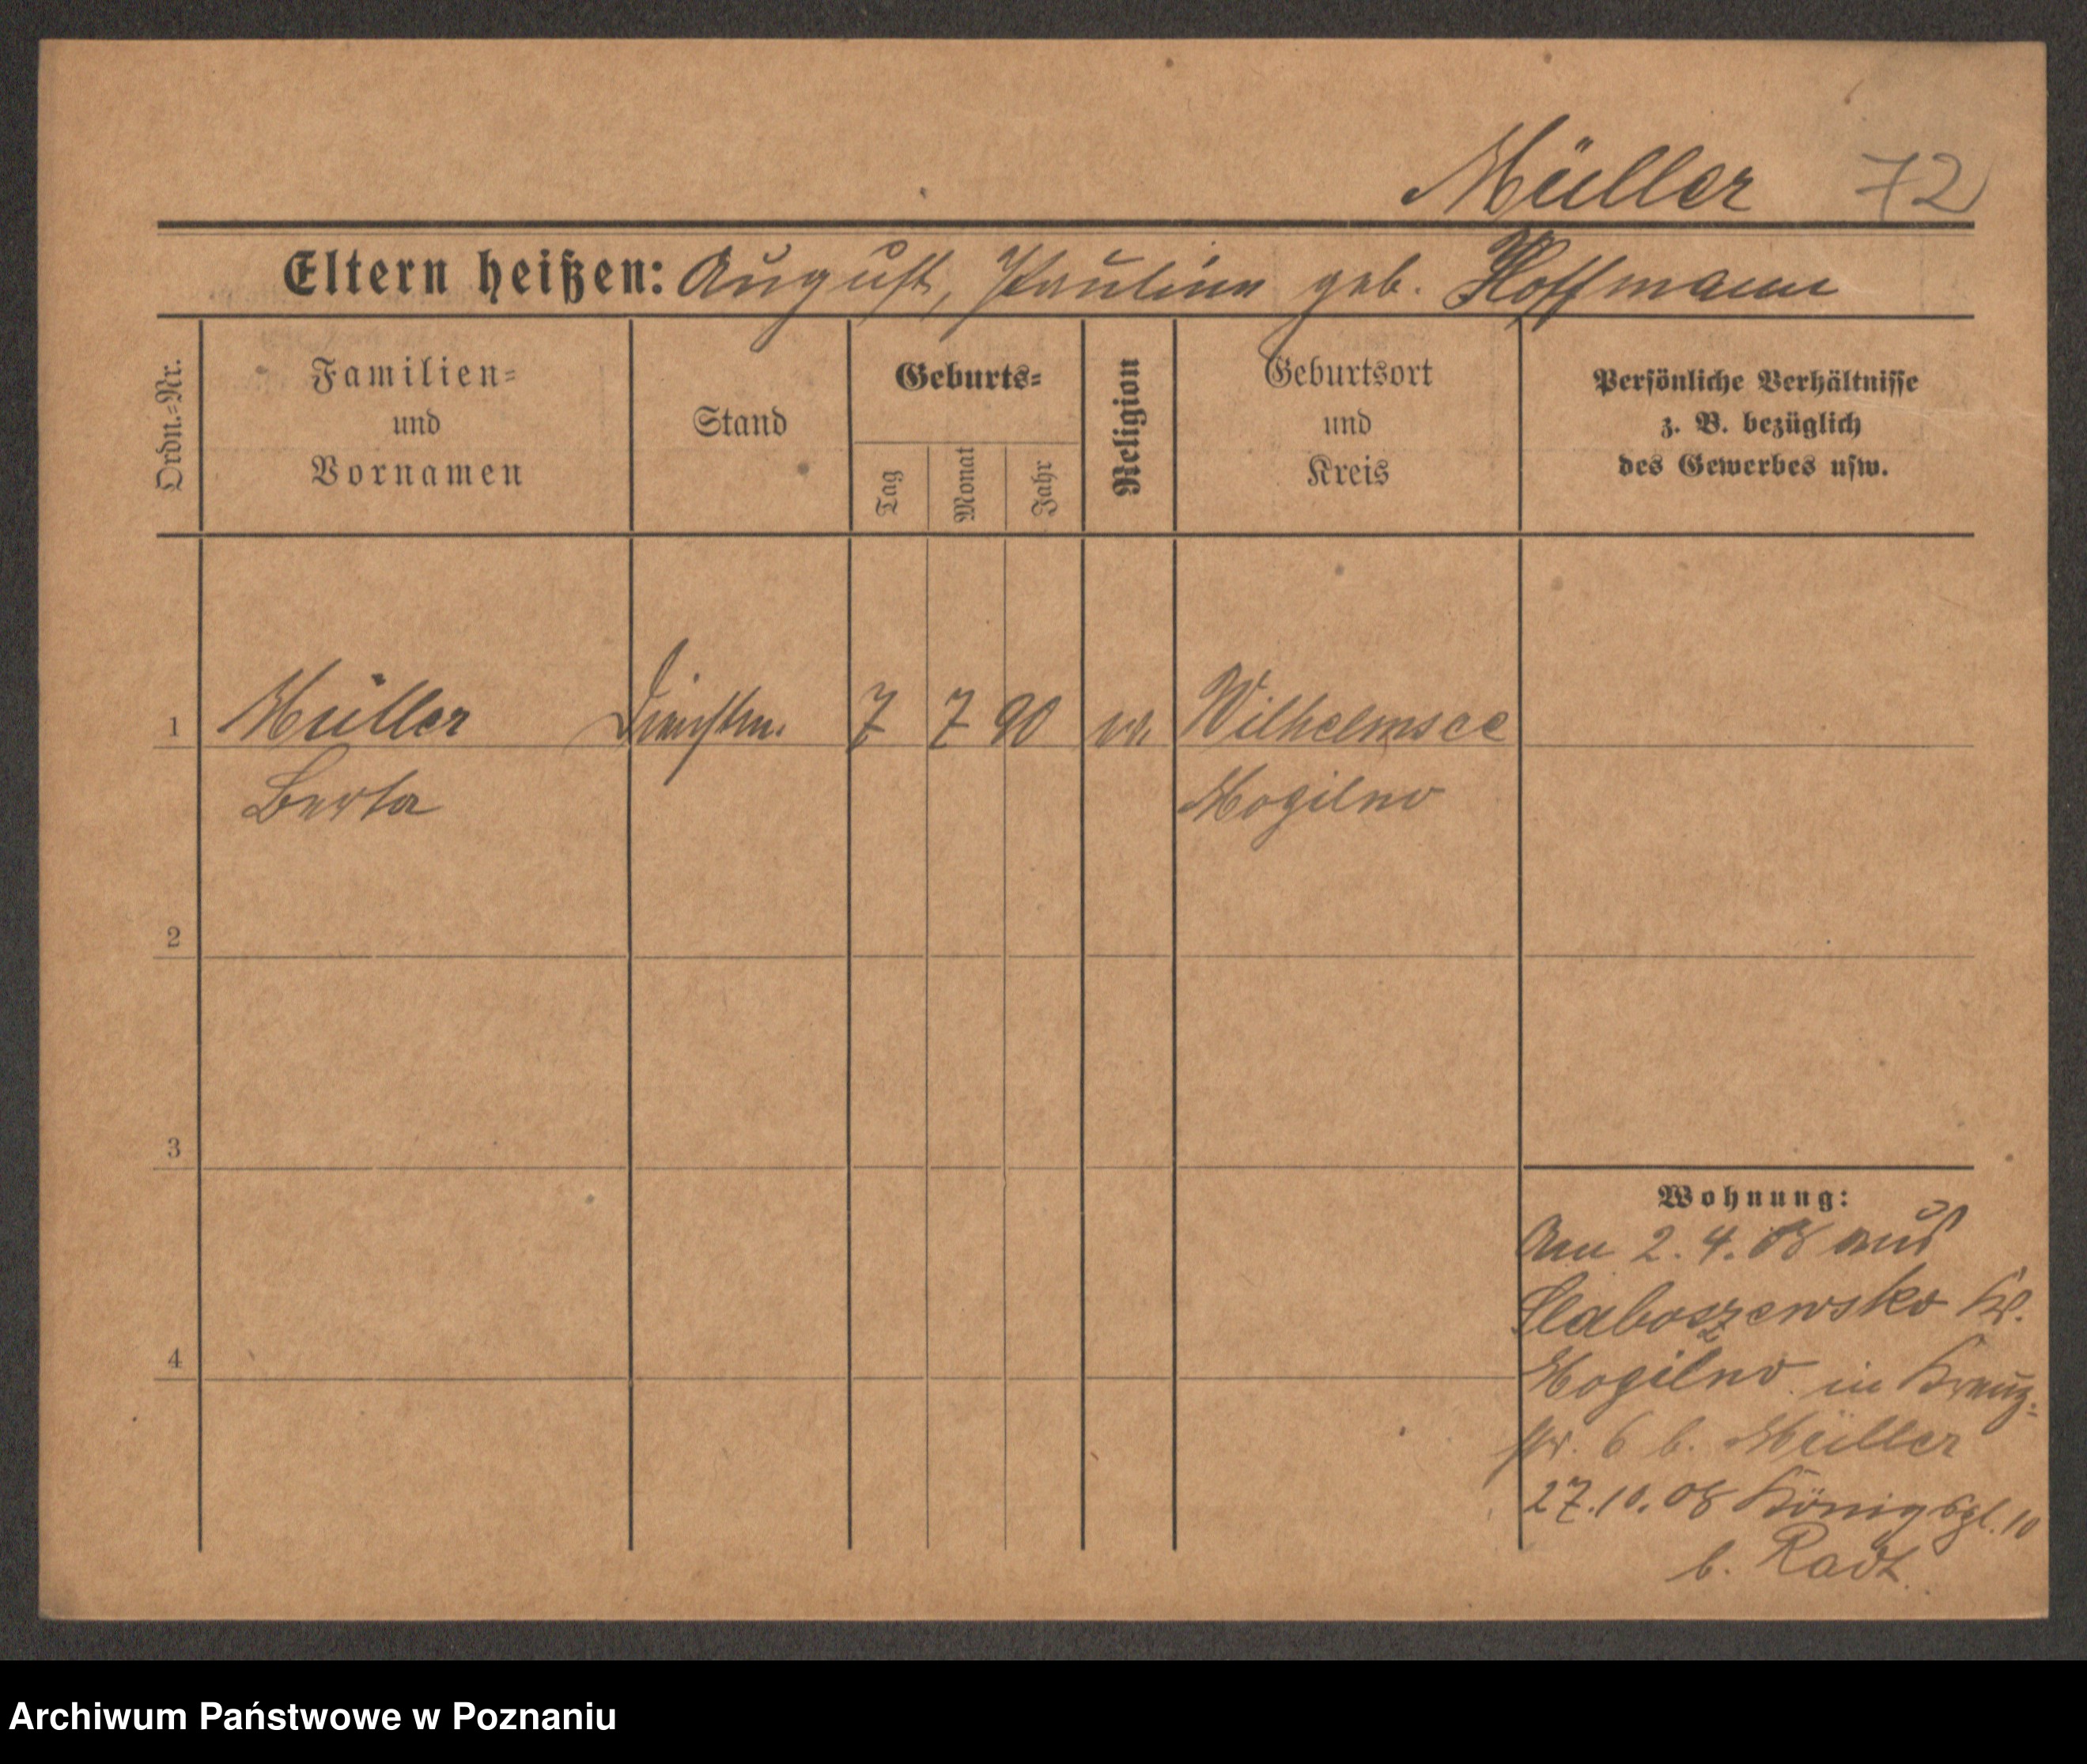 Müller 72
Eltern heißen: August, Pauline geb. Hoffmann
Ordn.-Nr.
Familien-
und
Vornamen
Stand
Geburts-
Tag
Monat
Jahr
Religion
Geburtsort
und
Kreis
Persönliche Verhältnisse
z. B. bezüglich
des Gewerbes usw.
1 Müller 7 7 90 ev. Wilhelmsee
Berta Mogilno
2
3
4
Wohnung:
Am 2. 4. 08 aus
Slaboszewsko Kr.
Mogilno in Kreuz-
str. 6 b. Müller
27. 10. 08 Königspl. 10
b. Radt.
Archiwum Państwowe w Poznaniu